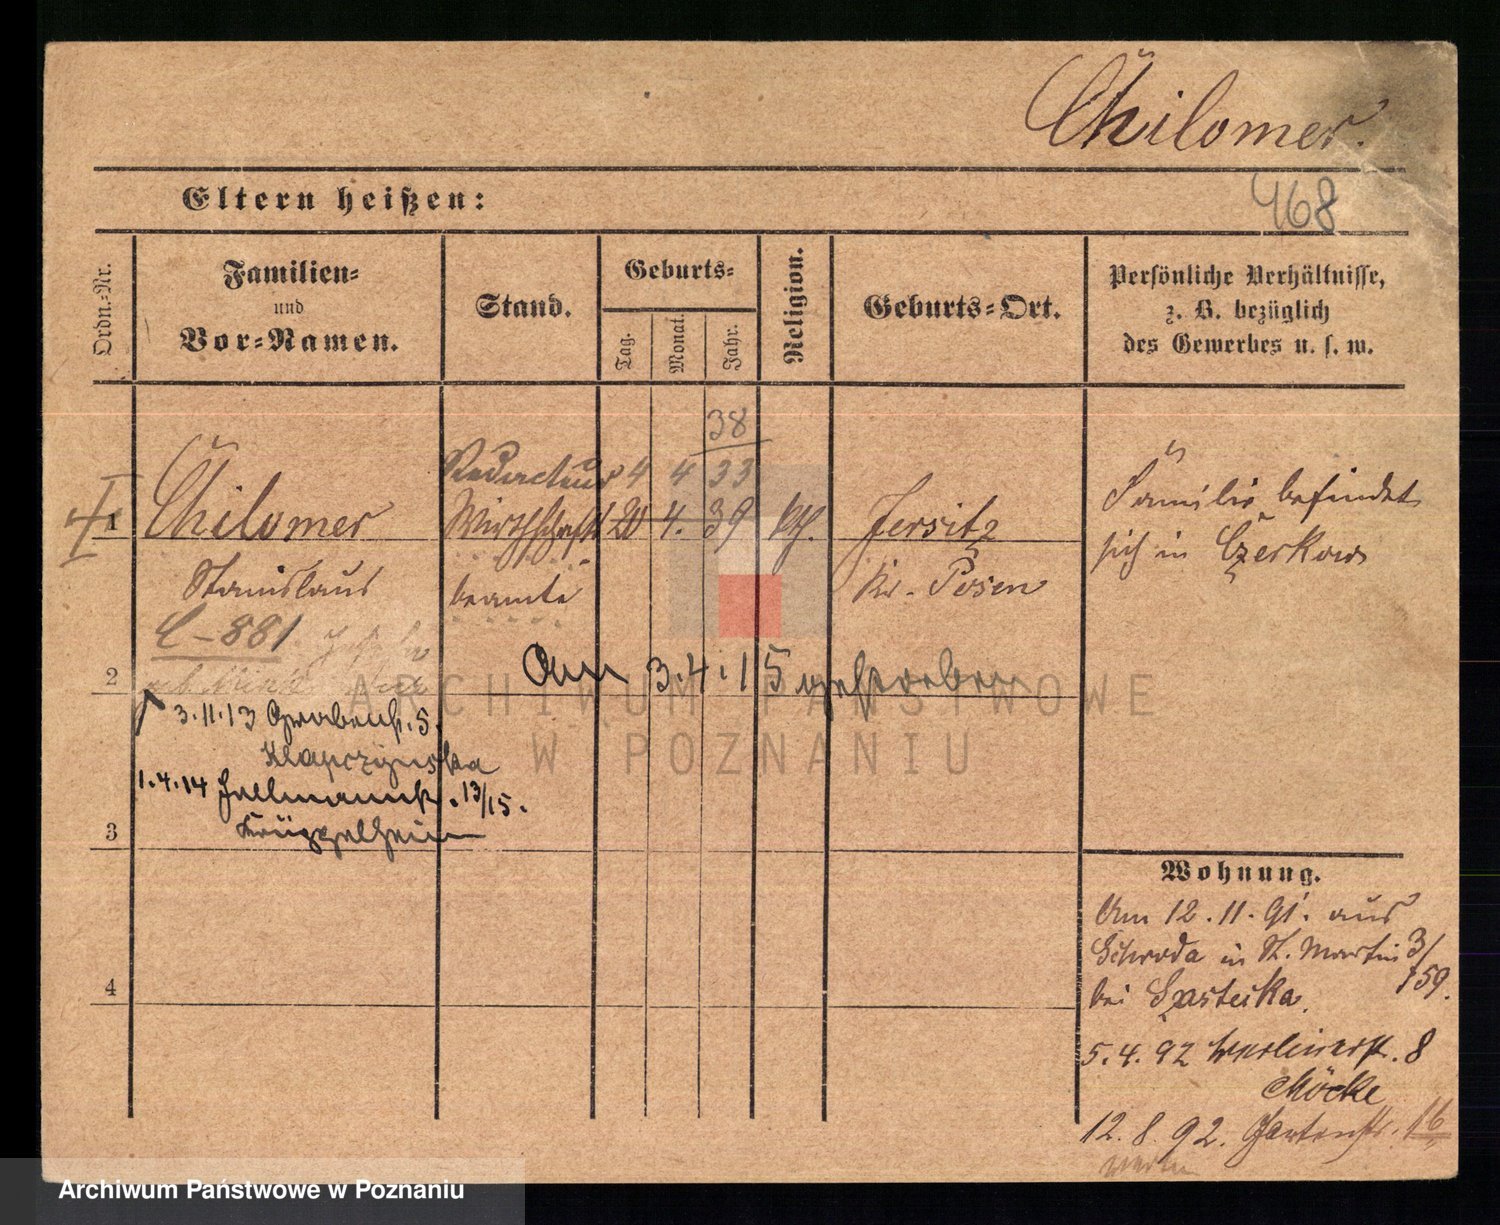 Chilomer.
468
Eltern heißen:
Ordn.-Nr.
Familien-
und
Vor-Namen.
Stand.
Geburts-
Tag.
Monat.
Jahr.
Religion.
Geburts-Ort.
Persönliche Verhältnisse,
z. B. bezüglich
des Gewerbes u. s. w.
38
Redacteur 4 4 33
1 Chilomer Wirthschafts 20 4. 39 kth. Jersitz
Stanislaus beamte Kr. Posen
Familie befindet
sich in Czerkow
C-881
Am 3.4.15 gestorben
2
3.11.13 Grabenstr. 5.
Klapczynska
1.4.14 13/15.
3
Krüggelheim
4
Wohnung.
Am 12.11.91. aus
Schroda in St. Martin 3/
159.
bei
5.4.92 Berlinerstr. 8
Möcke
12.8.92. Gartenstr. 16
ARCHIWUM PAŃSTWOWE
W POZNANIU
Archiwum Państwowe w Poznaniu